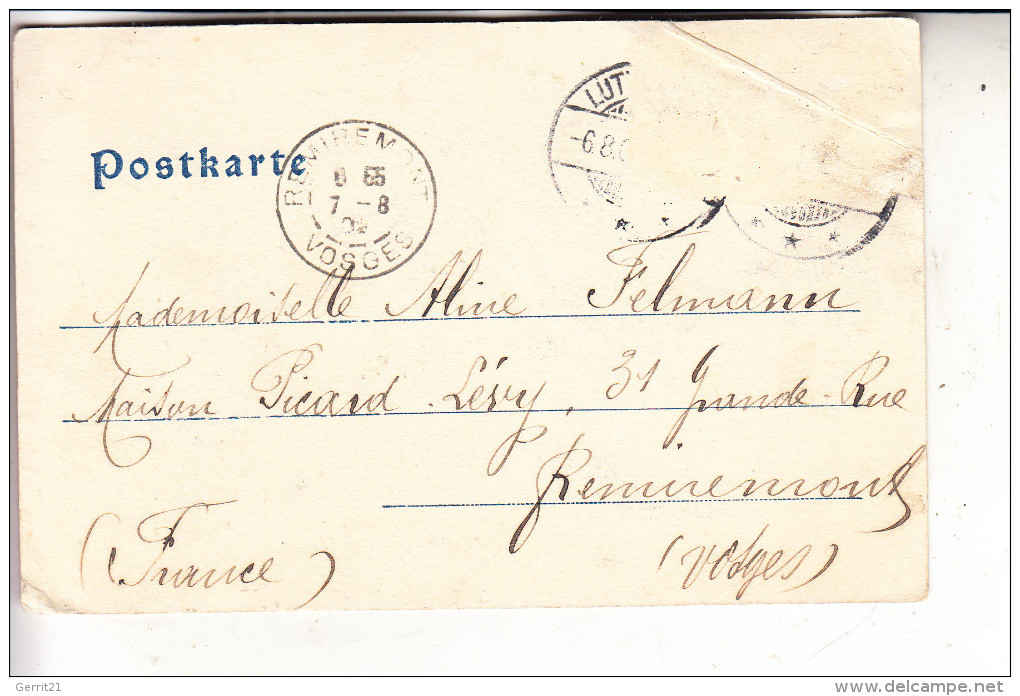 Postkarte
REMIREMONT
8 55
7 - 8
02
VOSGES
LUT
-6.8.0
Mademoiselle Aline Felmann
Maison Picard-Lévy, 31 Grande-Rue
Remiremont
(France)
(Vosges)
Gerrit21
www.delcampe.net